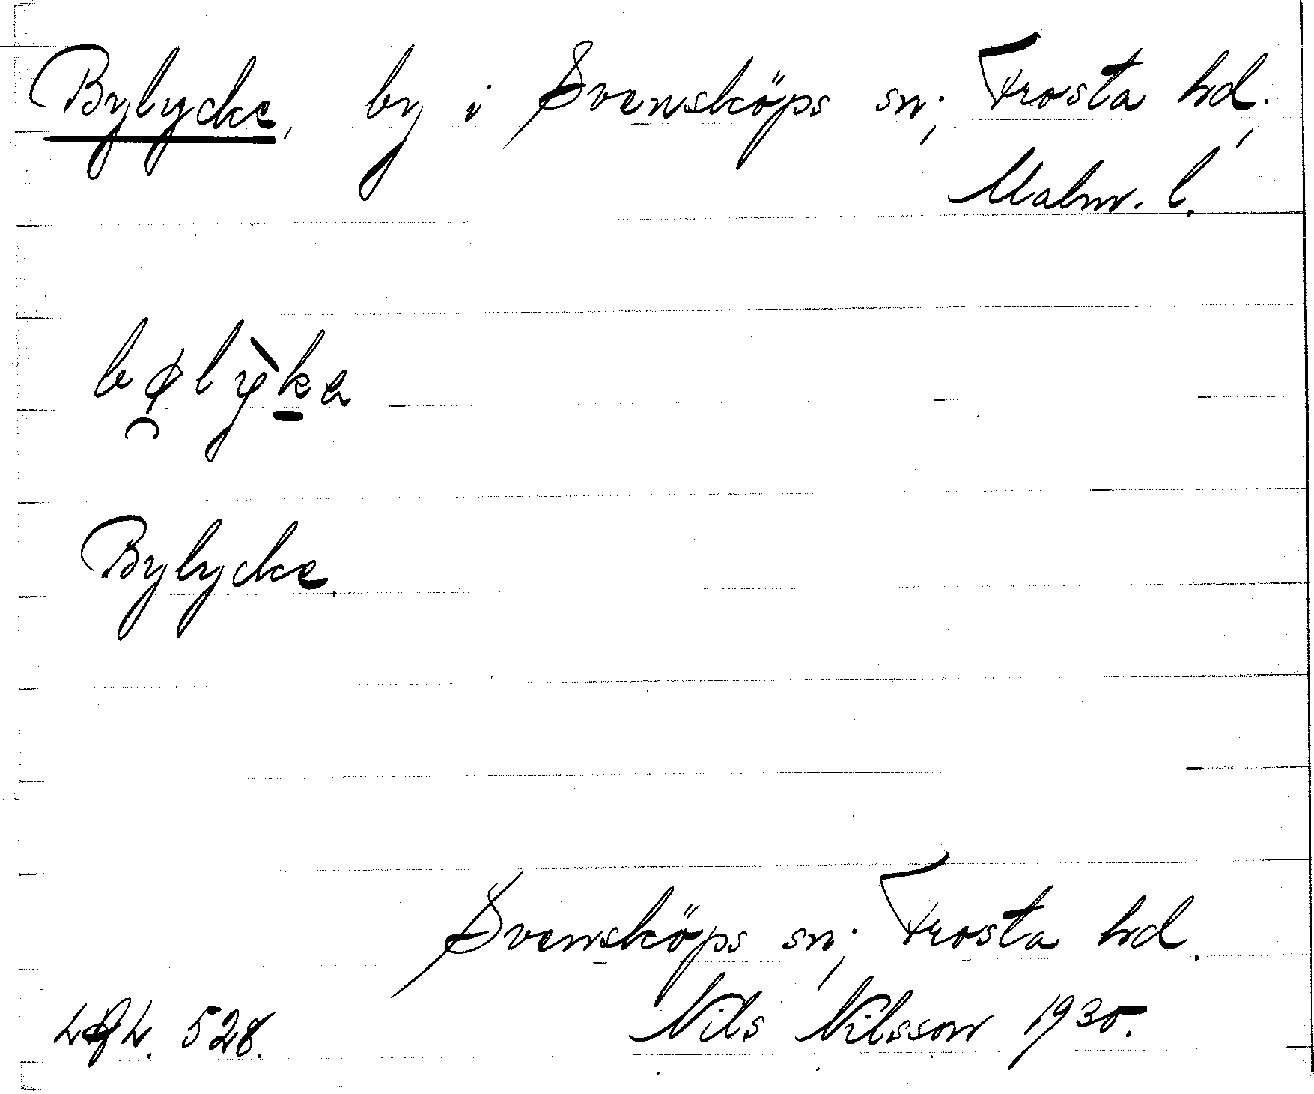 Bylycke, by i Svensköps sn; Frosta hd.,
Malm. l.
bølỳka
Bylycke.
Svensköps sn; Frosta hd.
528. Nils Nilsson 1930.